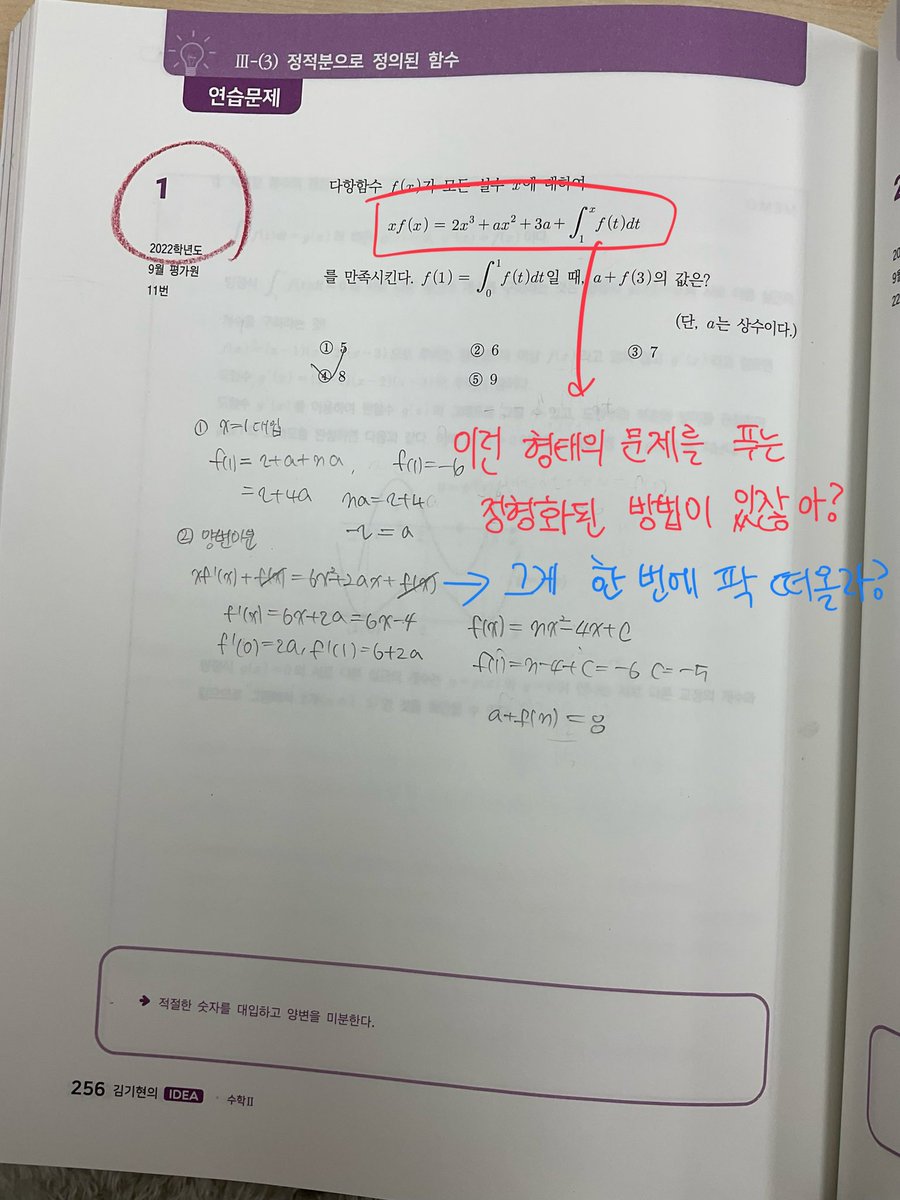 III-(3) 정적분으로 정의된 함수
연습문제
1
2022학년도
9월 평가원
11번
다항함수 f(x)가 모든 실수 x에 대하여
xf(x) = 2x³ + ax² + 3a + ∫₁ˣ f(t)dt
를 만족시킨다. f(1) = ∫₀¹ f(t)dt일 때, a + f(3)의 값은?
(단, a는 상수이다.)
① 5 ② 6 ③ 7
④ 8 ⑤ 9
이런 형태의 문제를 푸는
정형화된 방법이 있잖아?
→ 그게 한 번에 팍 떠올라?
① x=1 대입
f(1)=2+a+3a, f(1)=-6
=2+4a 3a=2+4a
-2=a
② 양변미분
xf'(x)+f(x)=6x²+2ax+f(x)
f'(x)=6x+2a=6x-4
f'(0)=2a, f'(1)=6+2a
f(x)=3x²-4x+C
f(1)=3-4+C=-6 C=-5
a+f(3)=8
➔ 적절한 숫자를 대입하고 양변을 미분한다.
256 김기현의 IDEA · 수학II